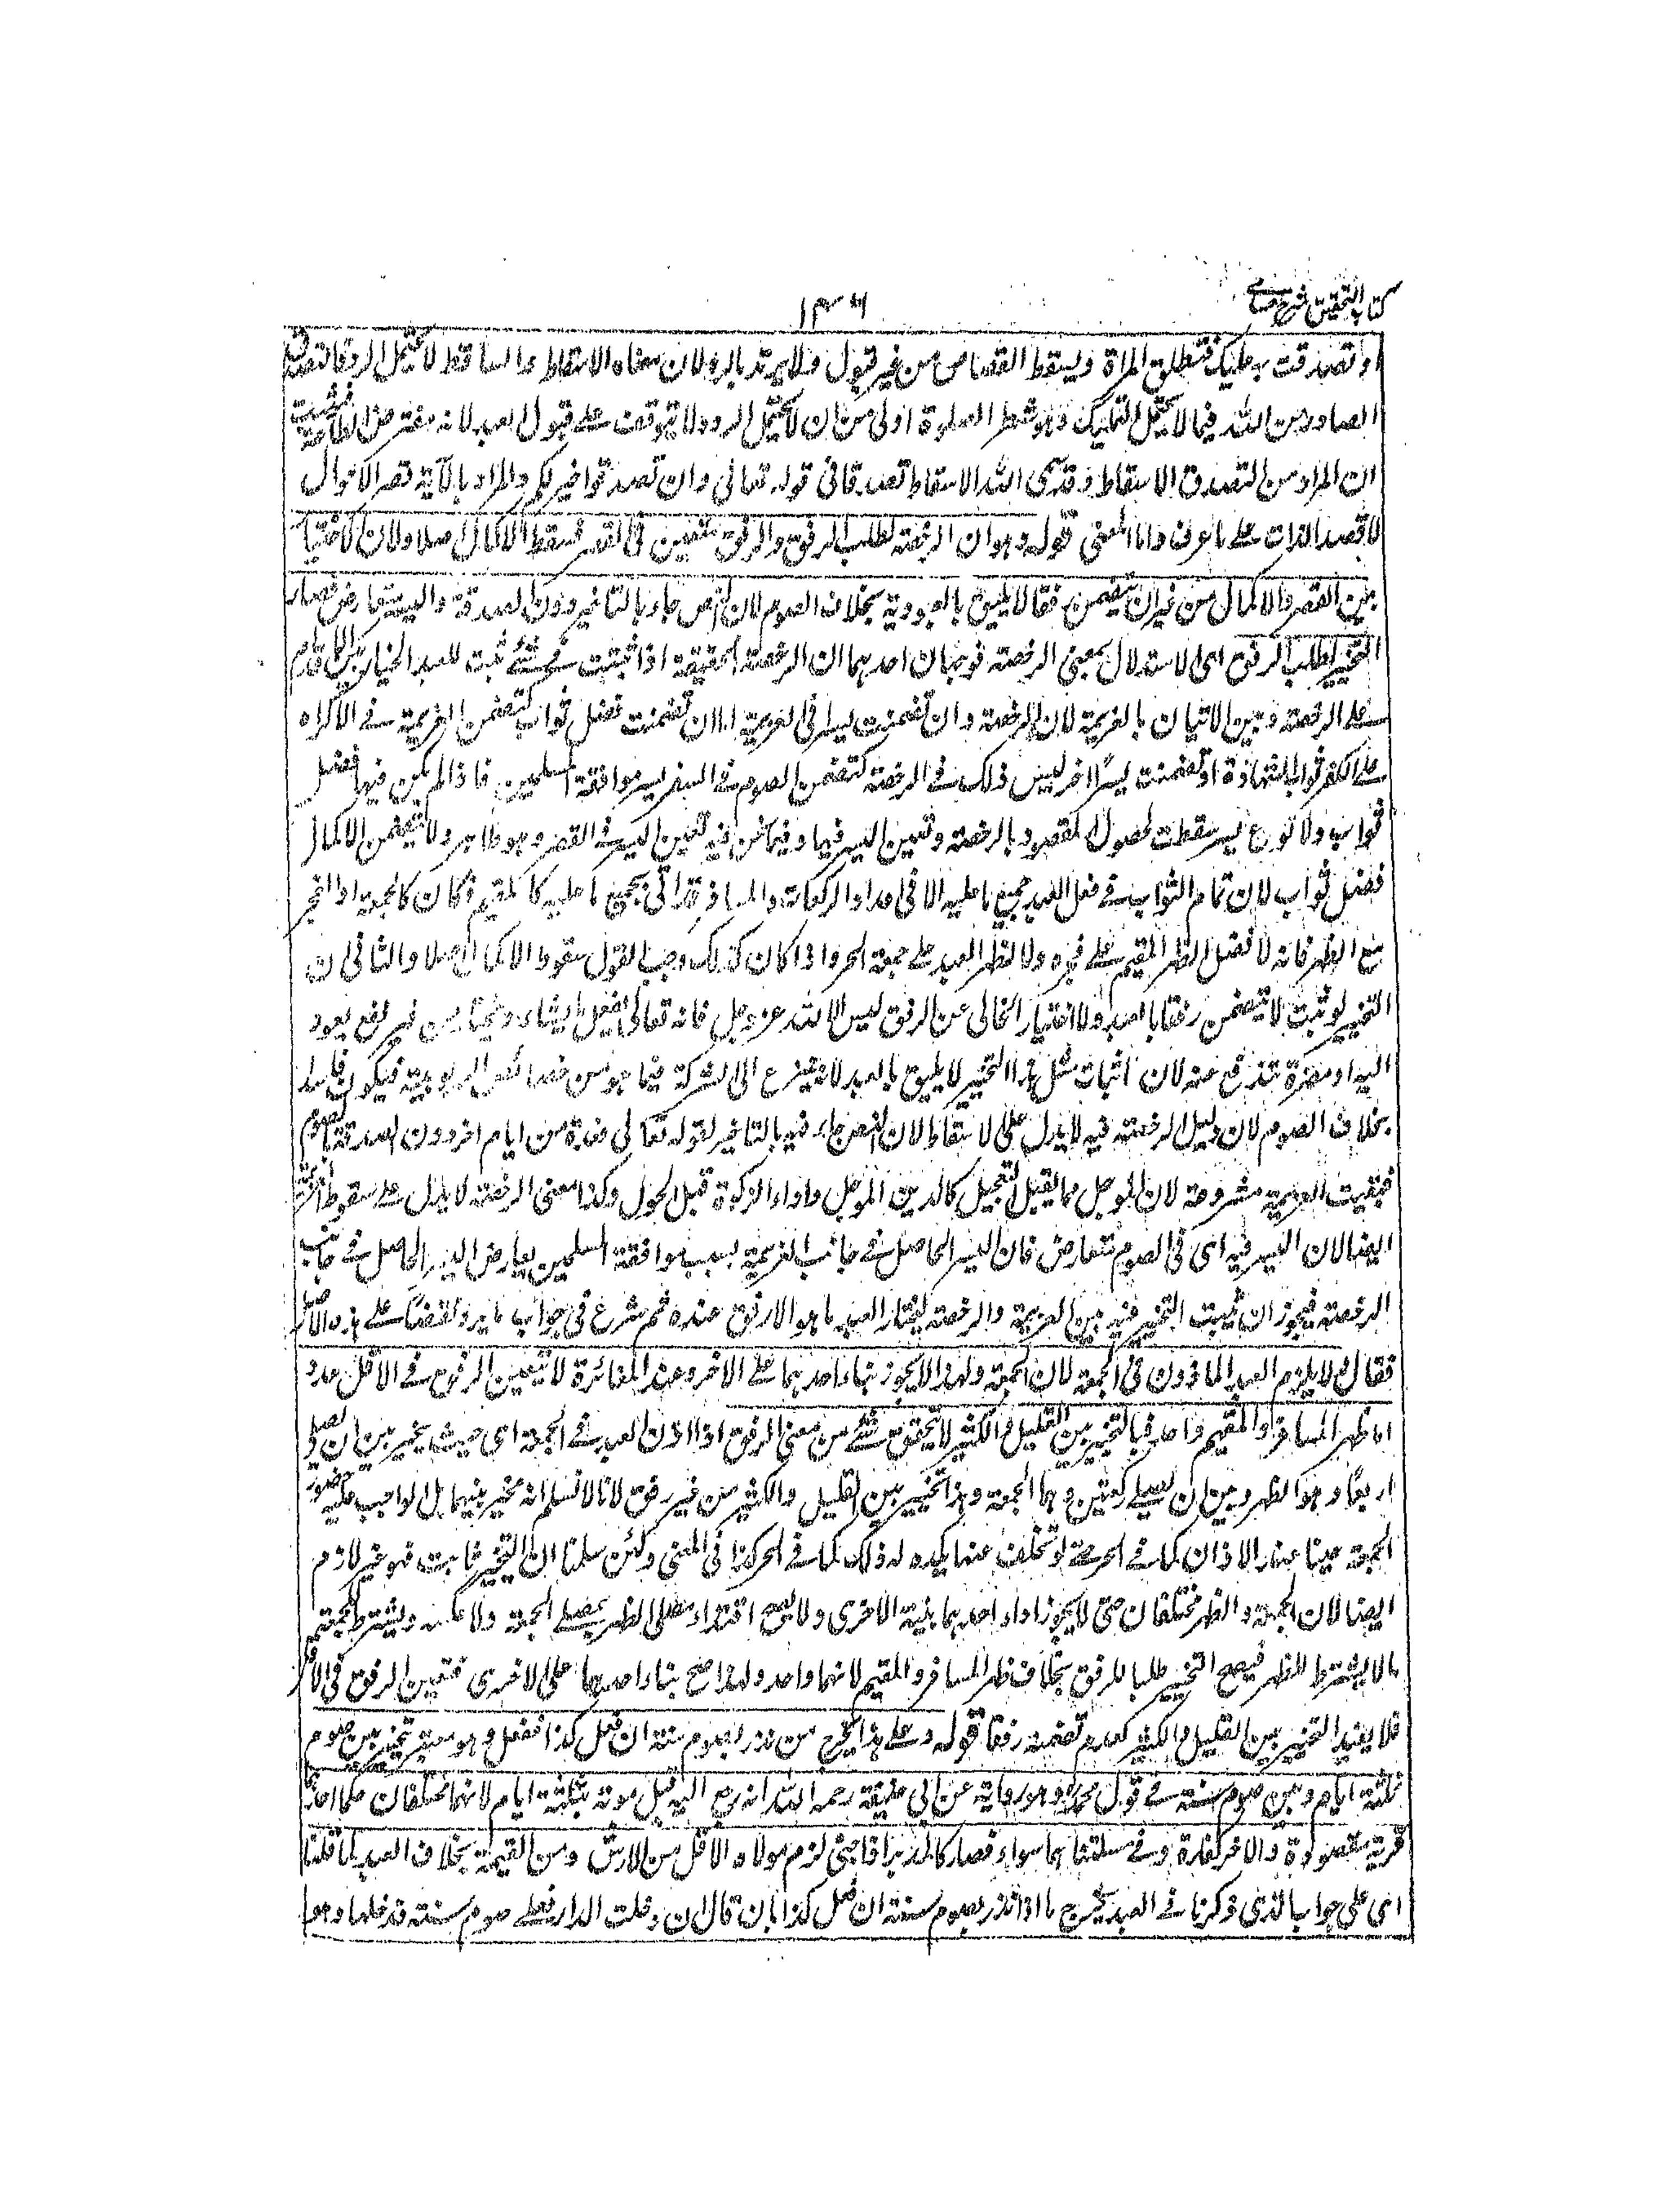 كتاب التحقيق شرح حسامى
١٣٦
او تصدقت به عليك فتطلق المراة ويسقط القصاص من غير قبول ولا يرتد بالرد لان معناه الاسقاط والساقط لا يحتمل الرد فالتصدق
الصادر من الله فيما لا يحتمل التمليك وهو شطر الصلوة اولى من ان لا يحتمل الرد ولا يتوقف على قبول العبد لانه مفترض الطاعة فثبت
ان المراد من التصدق الاسقاط وقد سمى الله الاسقاط تصدقا فى قوله تعالى وان تصدقوا خير لكم والمراد بالآية قصر الاحوال
لا قصد الذات على ما عرف واما المعنى قوله وهو ان الرخصة لطلب الرفق والرفق متعين فى القصر فسقط الاكمال اصلا ولان الاختيار
بين القصر والاكمال من غير ان يتضمن رفقا لا يليق بالعبودية بخلاف الصوم لان النص جاء بالتاخير دون الصدقة واليسر متعارض فصار
التخيير لطلب الرفق اى الاستدلال بمعنى الرخصة فوجهان احدهما ان الرخصة الحقيقية اذا ثبتت فى شئ ثبت للعبد الخيار بين الاقدام
على الرخصة وبين الاتيان بالعزيمة لان الرخصة وان تضمنت يسرا فالعزيمة اما ان تضمنت فضل ثواب كتضمن العزيمة فى الاكراه
على الكفر ثواب الشهادة او تضمنت يسرا اخر ليس ذلك فى الرخصة كتضمن الصوم فى السفر يسر موافقة المسلمين فاذا لم يكن فيها فضل
ثواب ولا نوع يسر سقطت لحصول المقصود بالرخصة وتعين اليسر فيها وفيما نحن فيه تعين اليسر فى القصر وهو ظاهر ولا يتضمن الاكمال
فضل ثواب لان تمام الثواب فى فعل العبد جميع ما عليه لا فى اعداد الركعات والمسافر قد اتى بجميع ما عليه كالمقيم فكان كالجمعة او الفجر
مع الظهر فانه لا فضل لظهر المقيم على فجره ولا لظهر العبد على جمعة الحر واذا كان كذلك وجب القول بسقوط الاكمال اصلا والثانى ان
التخيير لو ثبت لا يتضمن رفقا بالعبد ولا اختيار الخالى عن الرفق ليس الا لله عز وجل فانه تعالى يفعل ما يشاء ويختار من غير نفع يعود
اليه او مضرة تندفع عنه لان اثبات مثل هذا التخيير لا يليق بالعبد لانه ينزع الى الشركة فيما هو من خصائص الربوبية فيكون فاسدا
بخلاف الصوم لان دليل الرخصة فيه لا يدل على الاسقاط لان النص جاء فيه بالتاخير لقوله تعالى فعدة من ايام اخر دون الصدقة بالصوم
فبقيت العزيمة مشروعة لان المؤجل مما يقبل التعجيل كالدين المؤجل واداء الزكوة قبل الحول وكذا معنى الرخصة لا يدل على سقوط العزيمة
ايضا لان اليسر فيه اى فى الصوم متعارض فان اليسر الحاصل فى جانب العزيمة بسبب موافقة المسلمين يعارض اليسر الحاصل فى جانب
الرخصة فيجوز ان يثبت التخيير فيه بين العزيمة والرخصة ليختار العبد ما هو الارفق عنده ثم شرع فى جواب ما يرد نقضا على هذه الاصل
فقال ولا يلزم العبد الماذون فى الجمعة لان الجمعة ولهذا لا يجوز بناء احدهما على الاخر وعند المغائرة لا يتعين الرفق فى الاقل عددا
اما ظهر المسافر والمقيم واحد فبالتخيير بين القليل والكثير لا يتحقق شئ من معنى الرفق اذا اذن لعبد فى الجمعة اى حيث يخير بين ان يصلى
اربعا وهو الظهر وبين ان يصلى ركعتين وهما الجمعة وهذا تخيير بين القليل والكثير من غير رفق لانا لا نسلم انه مخير بينهما بل الواجب عليه حضور
الجمعة عينا عند الاذان كما فى الحر حتى لو تخلف عنها يكره له ذلك كما فى الحر كذا فى المغنى ولئن سلمنا ان التخيير ثابت فهو غير لازم
ايضا لان الجمعة والظهر مختلفان حتى لا يجوز اداء احدهما بنية الاخرى ولا يصح اقتداء مصلى الظهر بمصلى الجمعة ولا عكسه ويشترط للجمعة
ما لا يشترط للظهر فيصح التخيير طلبا للرفق بخلاف ظهر المسافر والمقيم لانهما واحد ولهذا صح بناء احدهما على الاخرى فتعين الرفق فى الاقل
فلا يفيد التخيير بين القليل والكثير لعدم تضمنه رفقا قوله وعلى هذا يخرج من نذر بصوم سنة ان فعل كذا ففعل وهو معسر يخير بين صوم
ثلثة ايام وبين صوم سنة فى قول محمد وهو رواية عن ابى حنيفة رحمه الله انه رجع اليه قبل موته بثلثة ايام لانهما مختلفان حكما احدهما
قربة مقصودة والاخر كفارة وفى مسئلتنا هما سواء فصار كالمدبر اذا جنى لزم مولاه الاقل من الارش ومن القيمة بخلاف العبد لما قلنا
اى على جواب الذى ذكرنا فى العبد يخرج ما اذا نذر بصوم سنة ان فعل كذا بان قال ان دخلت الدار فعلى صوم سنة فدخلها وهو